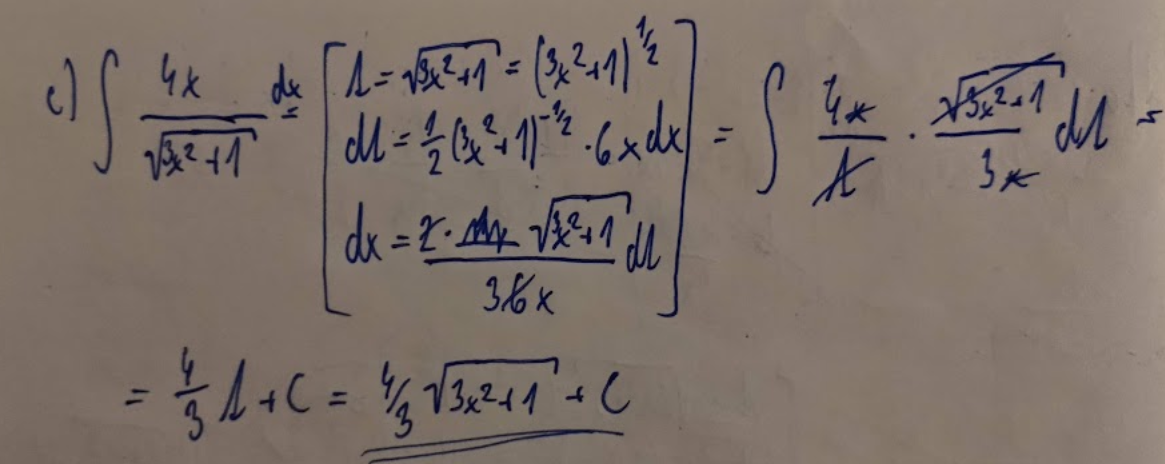 c) ∫ 4x/√(3x²+1) dx = [ t = √(3x²+1) = (3x²+1)^(1/2)
dt = 1/2 (3x²+1)^(-1/2) · 6x dx
dx = 2 · √(3x²+1)/(3 6x) dt ] = ∫ 4x/t · √(3x²+1)/3x dt =
= 4/3 t + C = 4/3 √(3x²+1) + C